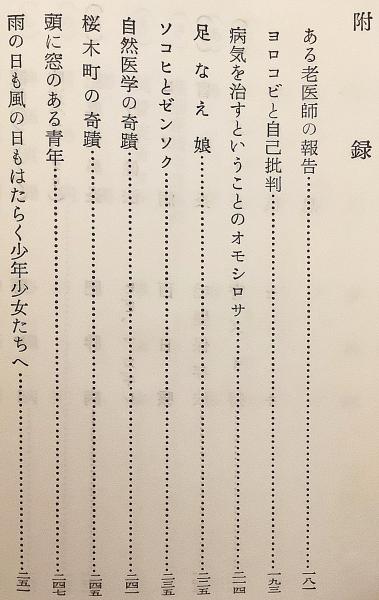 附録
ある老医師の報告……一八一
ヨロコビと自己批判……一九三
病気を治すということのオモシロサ……二一四
足なえ娘……二二五
ソコヒとゼンソク……二三五
自然医学の奇蹟……二四一
桜木町の奇蹟……二四五
頭に窓のある青年……二四七
雨の日も風の日もはたらく少年少女たちへ……二五一